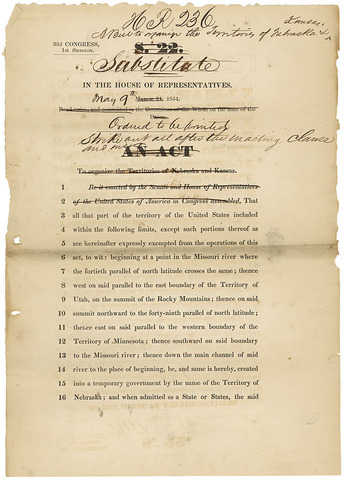 H R 236
A Bill to organize the Territories of Nebraska &
Kansas
33d CONGRESS,
1st Session.
S. 22.
Substitute
IN THE HOUSE OF REPRESENTATIVES.
May 9th March 21, 1854.
Read twice, and committed to the Committee of the Whole on the state of the
Union.
Ordered to be printed
Strike out all after the enacting clause
and
AN ACT
To organize the Territories of Nebraska and Kansas.
1 Be it enacted by the Senate and House of Representatives
2 of the United States of America in Congress assembled, That
3 all that part of the territory of the United States included
4 within the following limits, except such portions thereof as
5 are hereinafter expressly exempted from the operations of this
6 act, to wit: beginning at a point in the Missouri river where
7 the fortieth parallel of north latitude crosses the same; thence
8 west on said parallel to the east boundary of the Territory of
9 Utah, on the summit of the Rocky Mountains; thence on said
10 summit northward to the forty-ninth parallel of north latitude;
11 thence east on said parallel to the western boundary of the
12 Territory of Minnesota; thence southward on said boundary
13 to the Missouri river; thence down the main channel of said
14 river to the place of beginning, be, and same is hereby, created
15 into a temporary government by the name of the Territory of
16 Nebraska; and when admitted as a State or States, the said